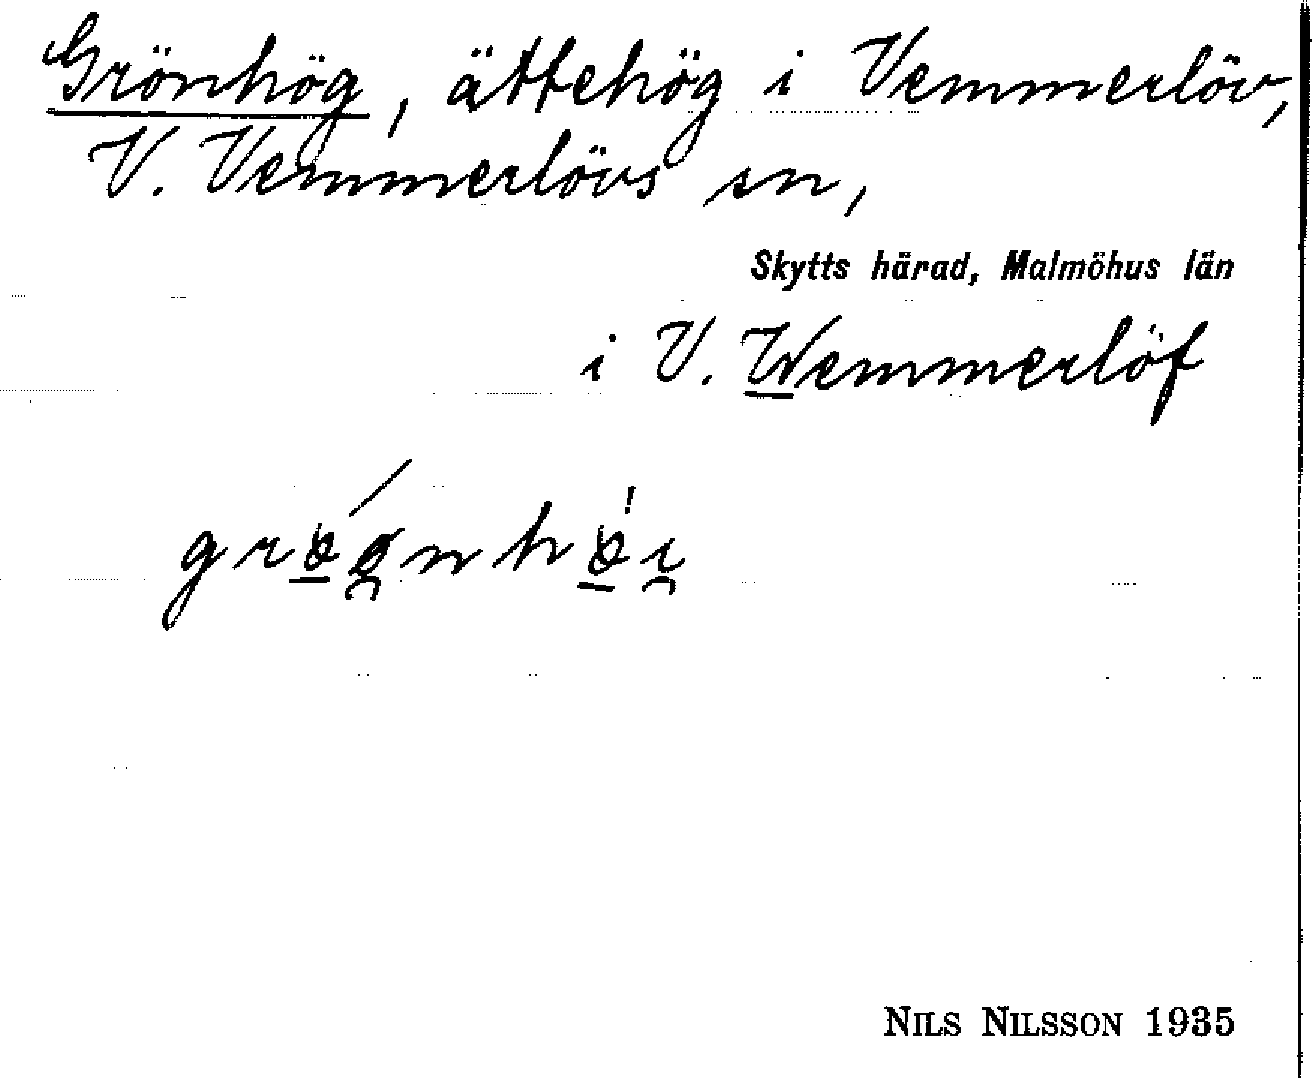 Grönhög, ättehög i Vemmerlöv,
V. Vemmerlövs sn,
Skytts härad, Malmöhus län
i V. Wemmerlöf
NILS NILSSON 1935